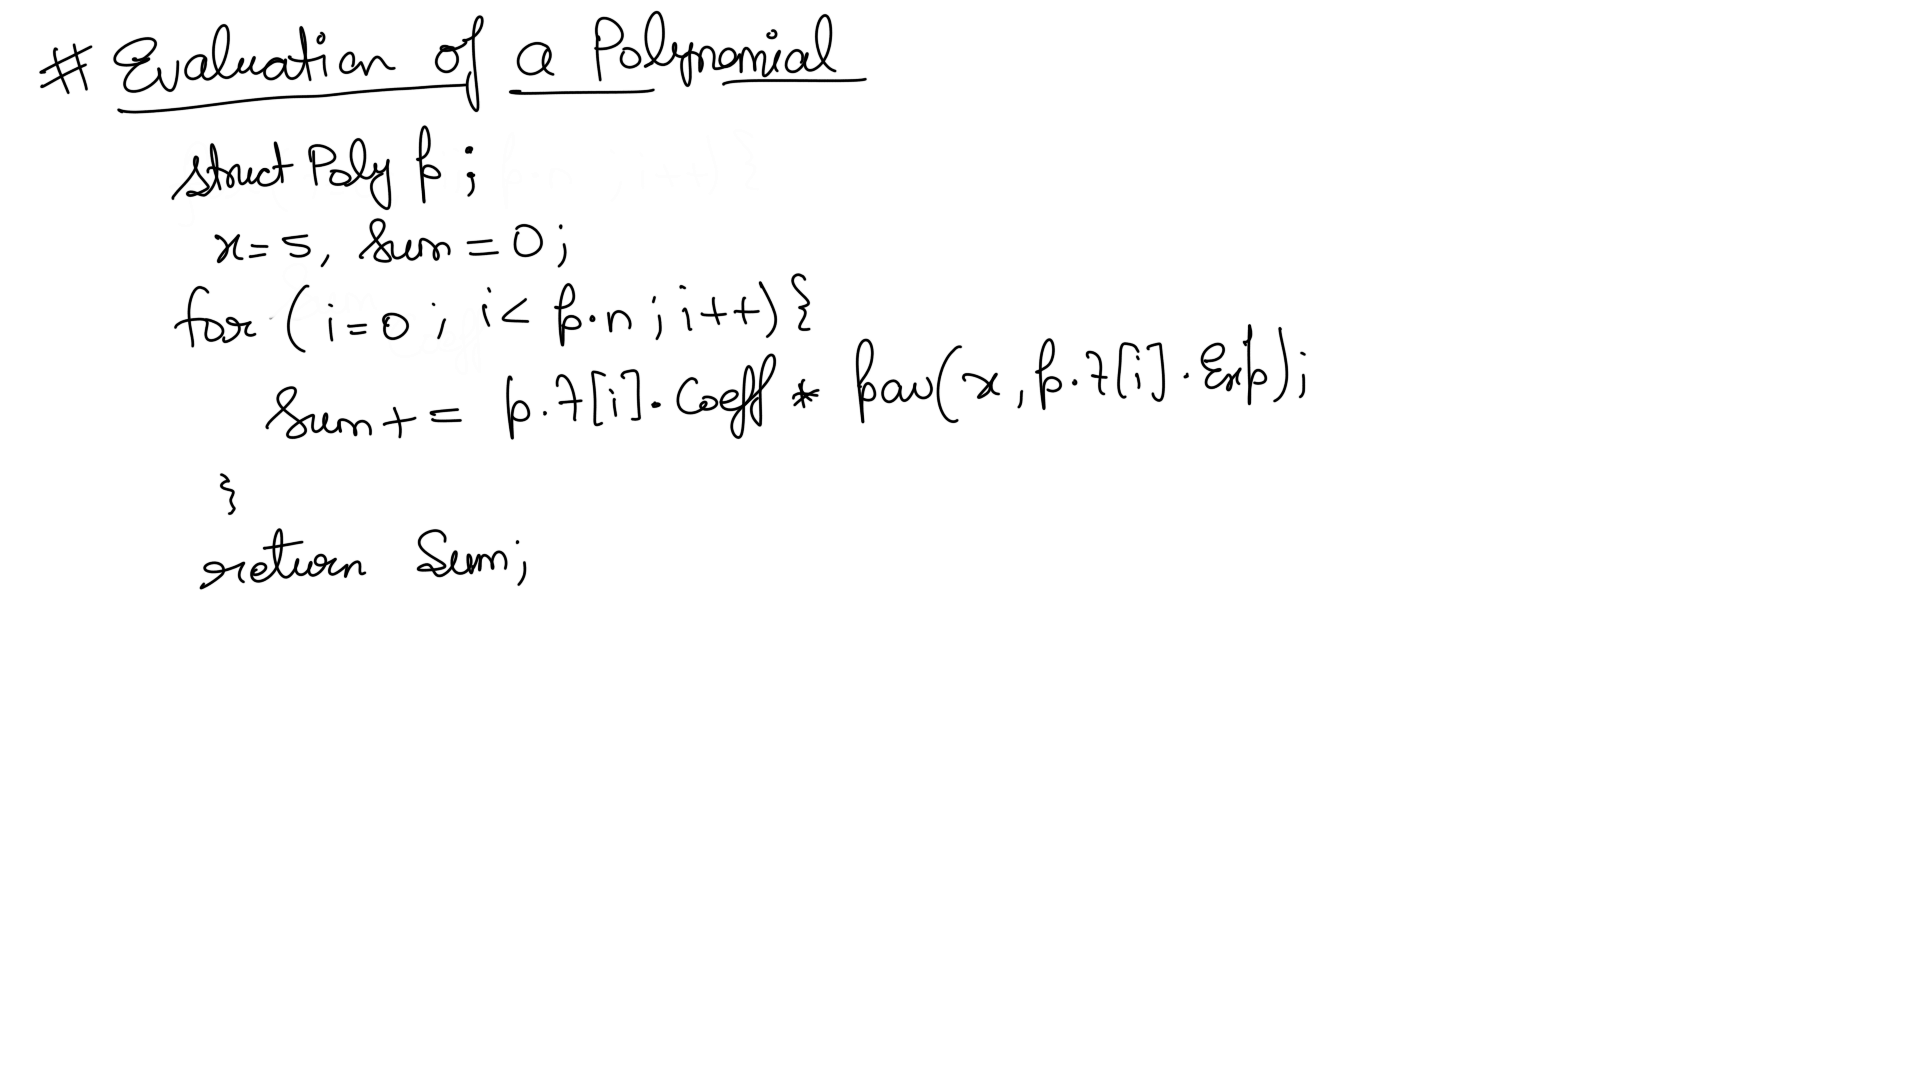 # Evaluation of a Polynomial
struct Poly p;
x=5, Sum=0;
for (i=0; i< p.n; i++){
Sum+= p.t[i].Coeff * pow(x, p.t[i].Exp);
}
return Sum;